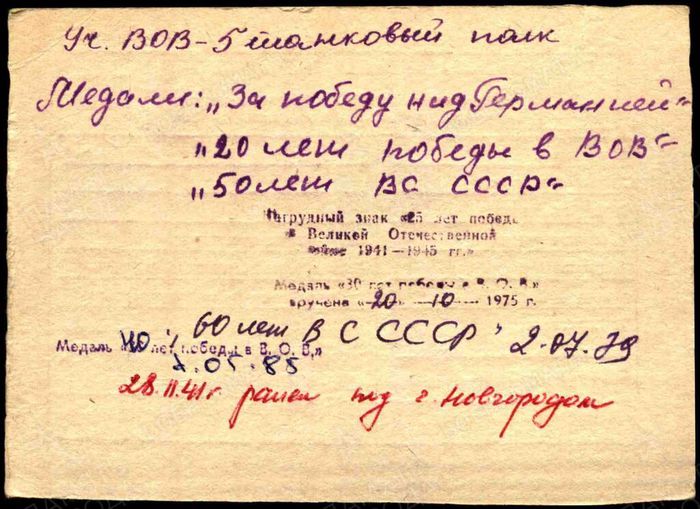 Уч. ВОВ - 5 танковый полк
Медали: „За победу над Германией“
„20 лет победы в ВОВ“
„50 лет ВС СССР“
Нагрудный знак «25 лет победы
в Великой Отечественной
войне 1941—1945 гг.»
Медаль «30 лет победы в В. О. В.»
вручена «20» 10 1975 г.
„60 лет ВС СССР“ 2.07.79
Медаль «40 лет победы в В. О. В.»
05.85
28.11.41г ранен под г. Новгородом